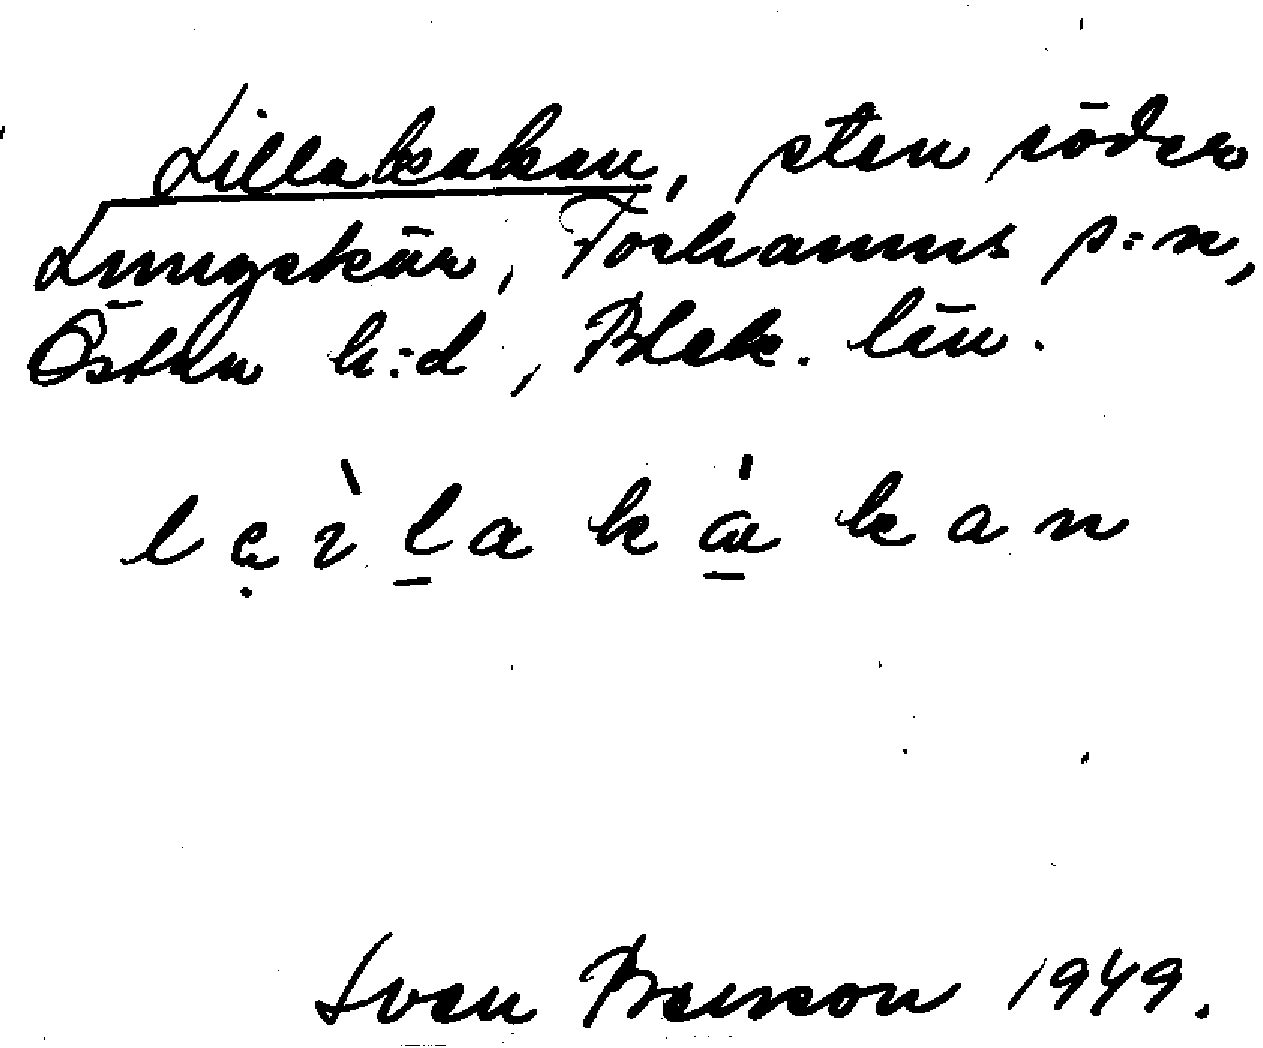 Lillakakan, sten söder
Lungskär, Torhamns s:n,
Östra h:d, Blek. län.
Sven Benson 1949.